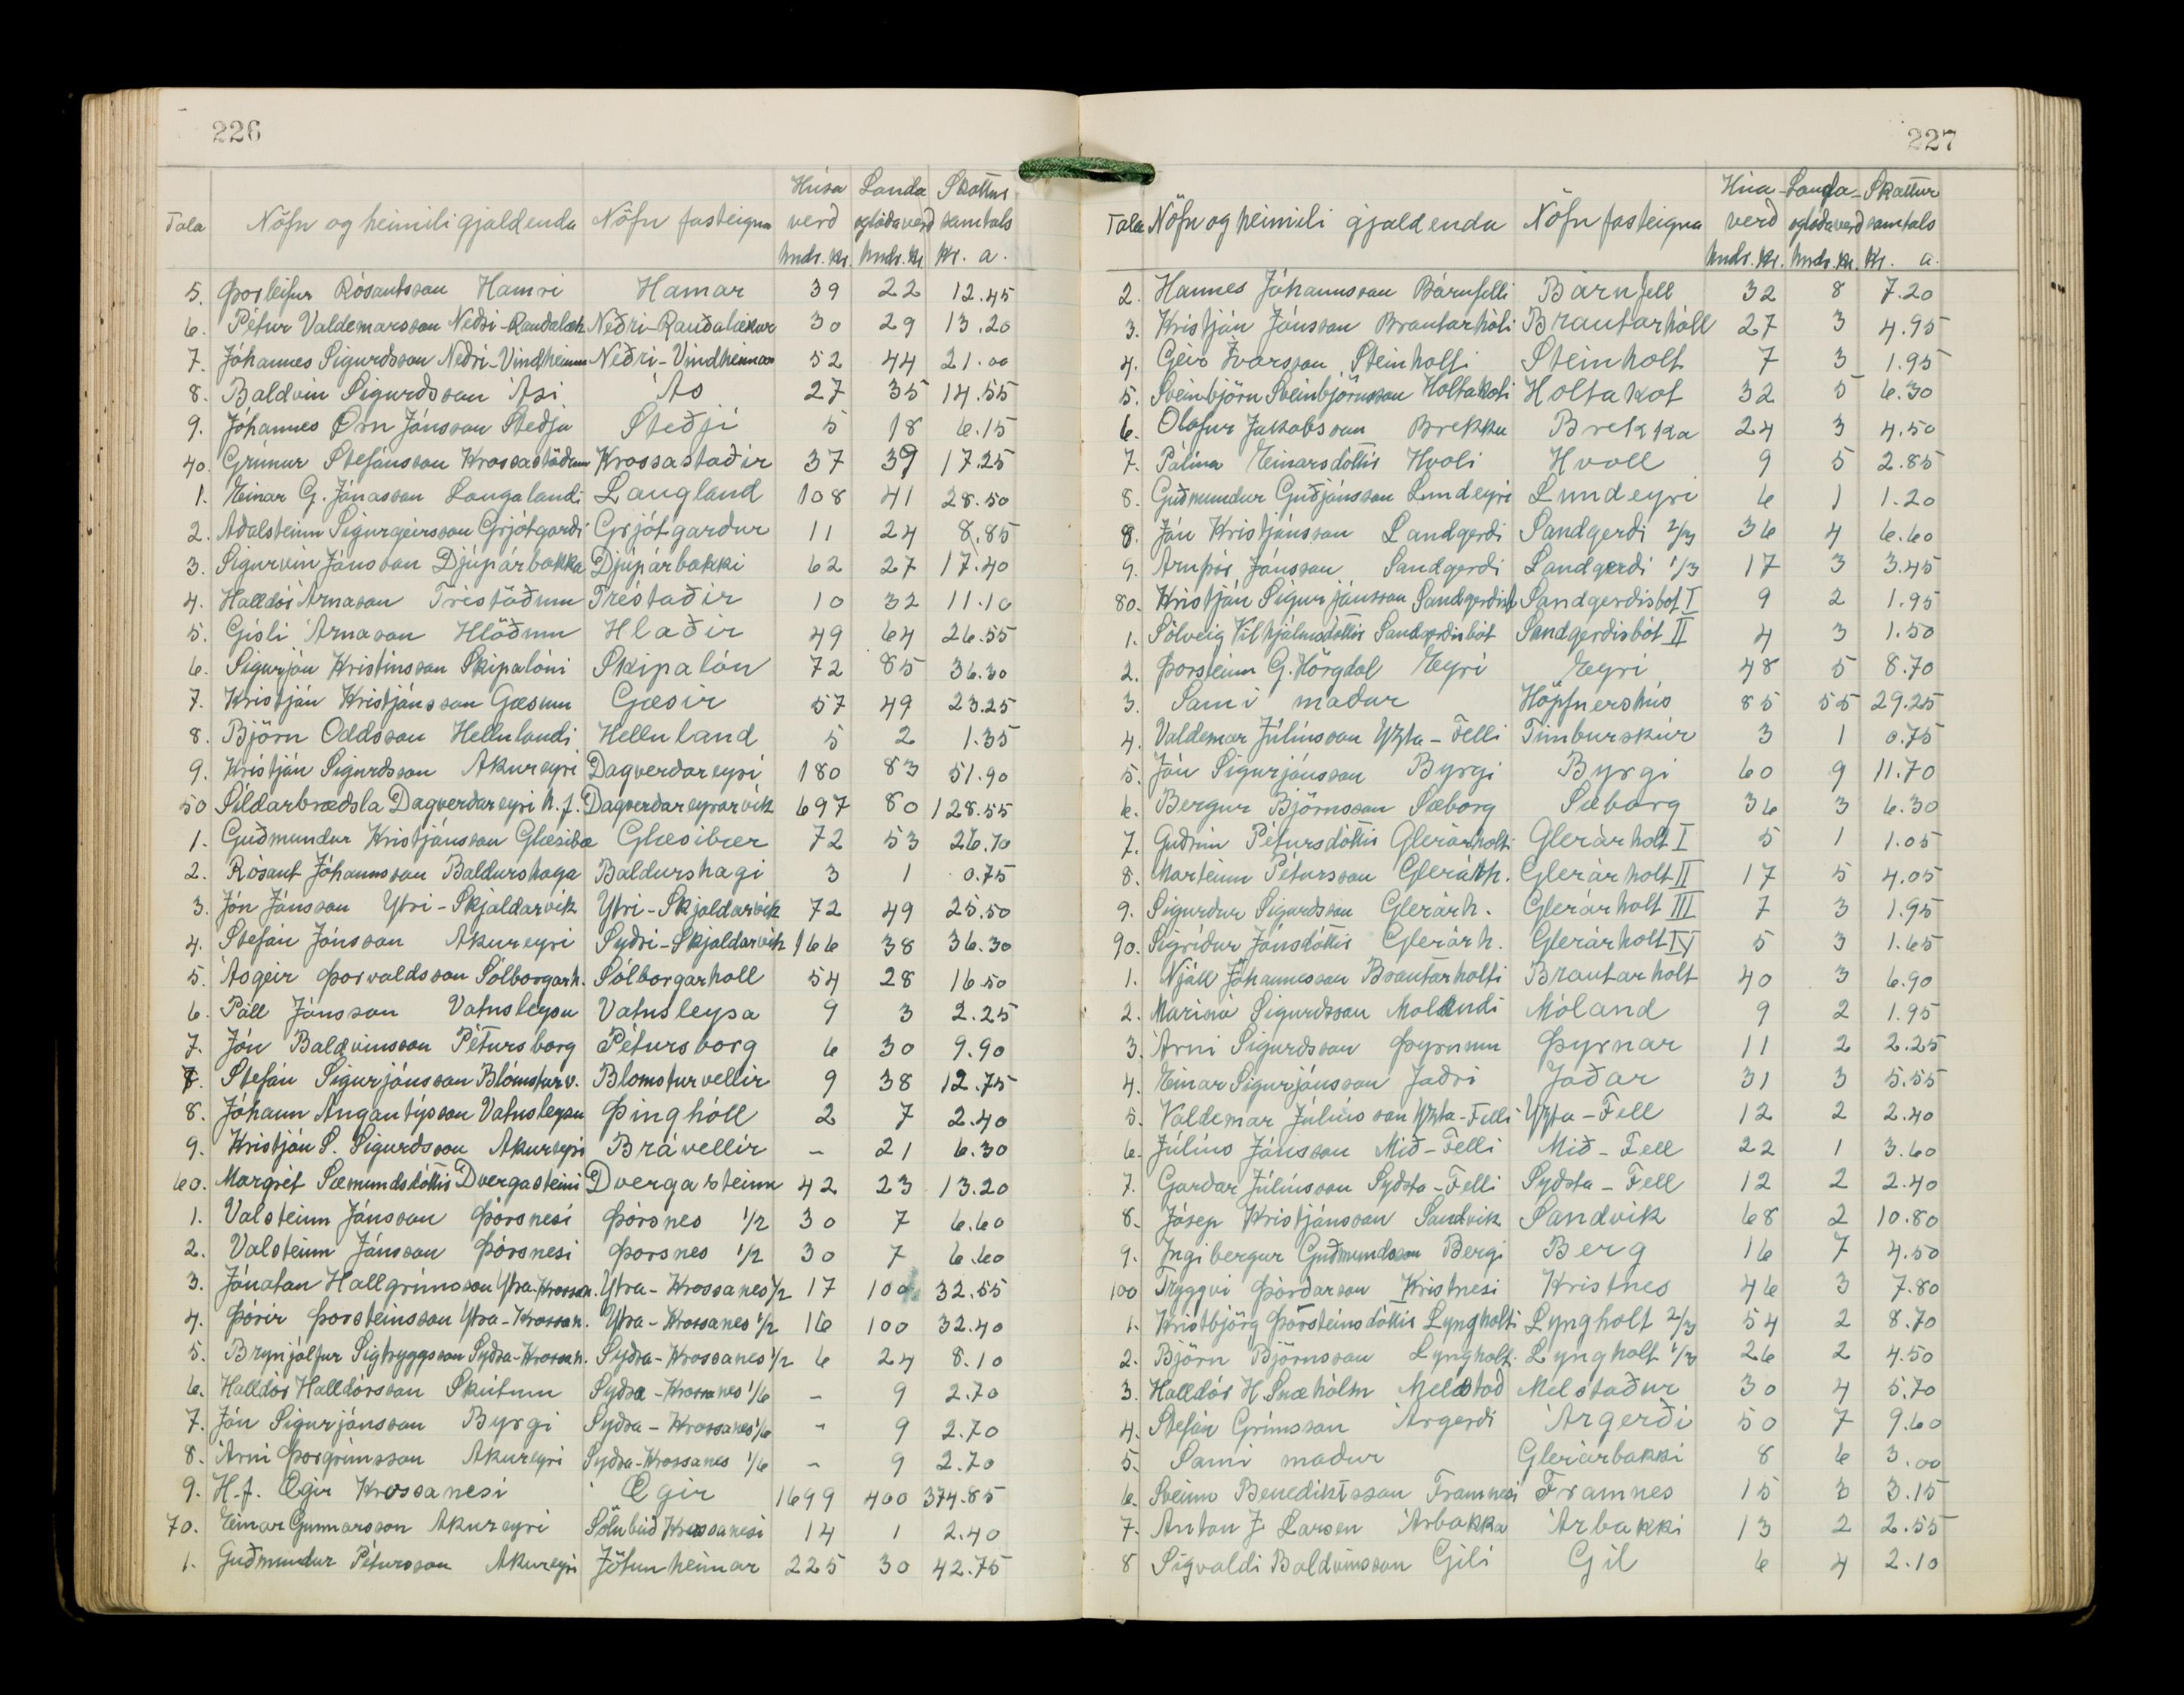 226
Tala Nöfn og heimili gjaldenda Nöfn fasteigna Húsa verd hndr. kr. Landa og lóðaverd hndr. kr. Skattur samtals kr. a.
5. Þorleifur Rósantsson Hamri Hamar 39 22 12.45
6. Pétur Valdemarsson Neðri-Rauðalæk Neðri-Rauðalækur 30 29 13.20
7. Jóhannes Sigurdsson Neðri-Vindheimum Neðri-Vindheimar 52 44 21.00
8. Baldvin Sigurdsson Ási Ás 27 35 14.55
9. Jóhannes Örn Jónsson Steðja Steðji 5 18 6.15
40. Grímur Stefánsson Krossastöðum Krossastaðir 37 39 17.25
1. Einar G. Jónasson Laugalandi Laugland 108 41 28.50
2. Adalsteinn Sigurgeirsson Grjótgardi Grjótgardur 11 24 8.85
3. Sigurvin Jónsson Djúpárbakka Djúpárbakki 62 27 17.40
4. Halldór Árnason Tréstöðum Tréstaðir 10 32 11.10
5. Gísli Árnason Hlöðum Hlaðir 49 64 26.55
6. Sigurjón Kristinsson Skipalóni Skipalón 72 85 36.30
7. Kristján Kristjánsson Gæsum Gæsir 57 49 23.25
8. Björn Oddsson Hellulandi Helluland 5 2 1.35
9. Kristján Sigurdsson Akureyri Dagverdareyri 180 83 51.90
50 Síldarbrædsla Dagverdareyri h.f. Dagverdareyrarvík 697 80 128.55
1. Guðmundur Kristjánsson Glæsibæ Glæsibær 72 53 26.70
2. Rósant Jóhannsson Baldurshaga Baldurshagi 3 1 0.75
3. Jón Jónsson Ytri-Skjaldarvík Ytri-Skjaldarvík 72 49 25.50
4. Stefán Jónsson Akureyri Sydri-Skjaldarvík 166 38 36.30
5. Ásgeir Þorvaldsson Sólborgarh. Sólborgarholl 54 28 16.50
6. Páll Jónsson Vatnsleysu Vatnsleysa 9 3 2.25
7. Jón Baldvinsson Pétursborg Pétursborg 6 30 9.90
8. Stefán Sigurjónsson Blómsturv. Blomsturvellir 9 38 12.75
8. Jóhann Angantýsson Vatnsleysu Þinghóll 2 7 2.40
9. Kristján S. Sigurdsson Akureyri Brávellir – 21 6.30
60. Margrét Sæmundsdóttir Dvergasteini Dvergasteinn 42 23 13.20
1. Valsteinn Jónsson Þórsnesi Þórsnes 1/2 30 7 6.60
2. Valsteinn Jónsson Þórsnesi Þorsnes 1/2 30 7 6.60
3. Jónatan Hallgrímsson Ytra-Krossan. Ytra-Krossanes 1/2 17 100 32.55
4. Þórir Þorsteinsson Ytra-Krossan. Ytra-Krossanes 1/2 16 100 32.40
5. Brynjólfur Sigtryggsson Sydra-Krossan. Sydra-Krossanes 1/2 6 24 8.10
6. Halldór Halldórsson Skútum Sydra-Krossanes 1/6 – 9 2.70
7. Jón Sigurjónsson Byrgi Sydra-Krossanes 1/6 – 9 2.70
8. Árni Þorgrímsson Akureyri Sydra-Krossanes 1/6 – 9 2.70
9. H.f. Ægir Krossanesi Ægir 1699 400 374.85
70. Einar Gunnarsson Akureyri Sölubúð Krossanesi 14 1 2.40
1. Guðmundur Pétursson Akureyri Jötunheimar 225 30 42.75
227
Tala Nöfn og heimili gjaldenda Nöfn fasteigna Húa- verd hndr. kr. Landa- og lóðaverd hndr. kr. Skattur samtals kr. a.
2. Hannes Jóhannsson Bárufelli Bárufell 32 8 7.20
3. Kristján Jónsson Brautarhóli Brautarhóll 27 3 4.95
4. Geir Ívarsson Steinholti Steinholt 7 3 1.95
5. Sveinbjörn Sveinbjörnsson Holtakoti Holtakot 32 5 6.30
6. Ólafur Jakobsson Brekku Brekka 24 3 4.50
7. Pálína Einarsdóttir Hvoli Hvoll 9 5 2.85
8. Guðmundur Guðjónsson Lundeyri Lundeyri 6 1 1.20
8. Jón Kristjánsson Sandgerdi Sandgerdi 2/3 36 4 6.60
9. Arnþór Jónsson Sandgerdi Sandgerdi 1/3 17 3 3.45
80. Kristján Sigurjónsson Sandgerdisb. Sandgerdisbót I 9 2 1.95
1. Sólveig Vilhjálmsdóttir Sandgerdisbót Sandgerdisbót II 4 3 1.50
2. Þorsteinn G. Hörgdal Eyri Eyri 48 5 8.70
3. Sami madur Höpfnershús 85 55 29.25
4. Valdemar Júlíusson Yzta-Felli Timburskúr 3 1 0.75
5. Jón Sigurjónsson Byrgi Byrgi 60 9 11.70
6. Bergur Björnsson Sæborg Sæborg 36 3 6.30
7. Gudrún Pétursdóttir Glerárholti Glerárholt I 5 1 1.05
8. Marteinn Pétursson Glerárh. Glerárholt II 17 5 4.05
9. Sigurdur Sigurdsson Glerárh. Glerárholt III 7 3 1.95
90. Sigrídur Jónsdóttir Glerárh. Glerárholt IV 5 3 1.65
1. Njáll Jóhannesson Brautarholti Brautarholt 40 3 6.90
2. Marinó Sigurdsson Mólandi Móland 9 2 1.95
3. Árni Sigurdsson Þyrnum Þyrnar 11 2 2.25
4. Einar Sigurjónsson Jadri Jaðar 31 3 5.55
5. Valdemar Júlíusson Yzta-Felli Yzta-Fell 12 2 2.40
6. Júlíus Jónsson Mið-Felli Mið-Fell 22 1 3.60
7. Gardar Júlíusson Sydsta-Felli Sydsta-Fell 12 2 2.40
8. Jósep Kristjánsson Sandvík Sandvík 68 2 10.80
9. Ingibergur Guðmundsson Bergi Berg 16 7 4.50
100 Tryggvi Þórdarson Kristnesi Kristnes 46 3 7.80
1. Kristbjörg Þorsteinsdóttir Lyngholti Lyngholt 2/3 54 2 8.70
2. Björn Björnsson Lyngholt. Lyngholt 1/3 26 2 4.50
3. Halldór H. Snæhólm Melstad Melstaður 30 4 5.70
4. Stefán Grímsson Árgerdi Árgerði 50 7 9.60
5. Sami madur Glerárbakki 8 6 3.00
6. Sveinn Benediktsson Framnesi Framnes 15 3 3.15
7. Anton J. Larsen Árbakka Árbakki 13 2 2.55
8 Sigvaldi Baldvinsson Gili Gil 6 4 2.10